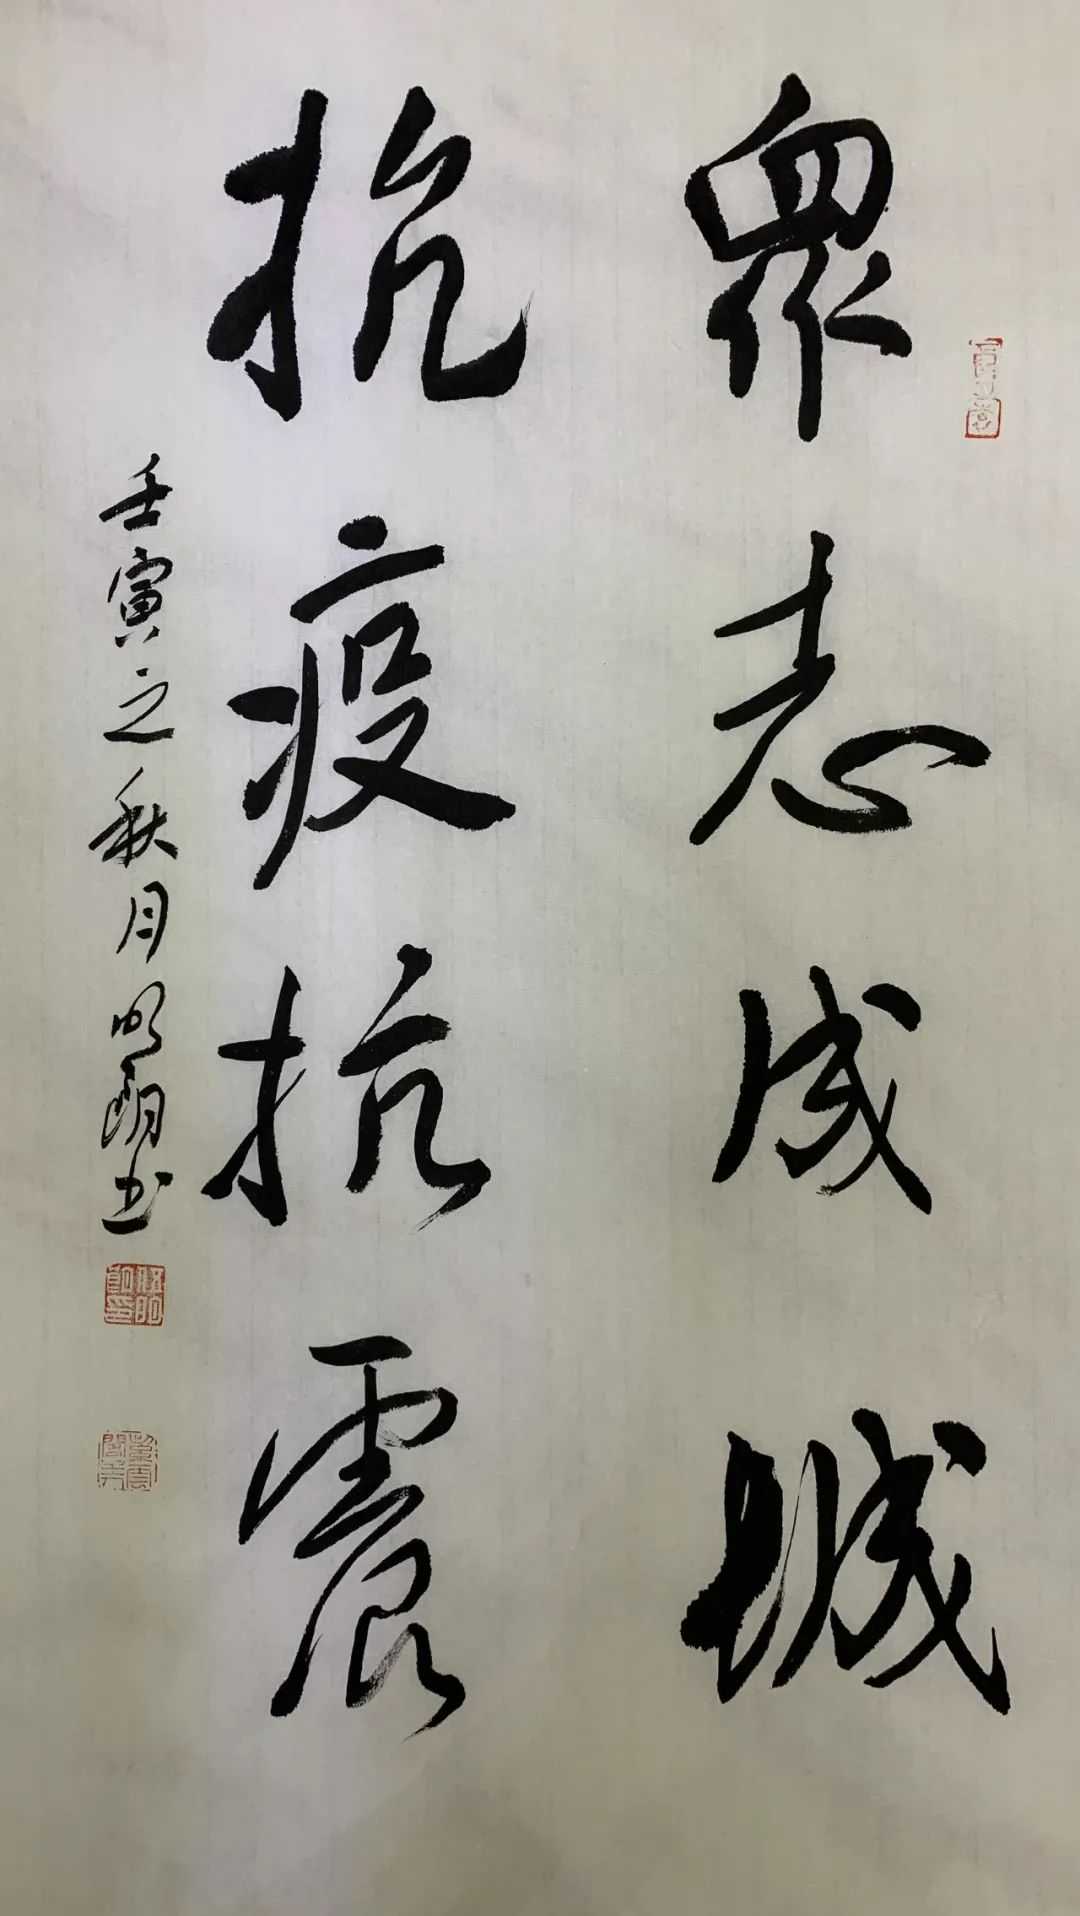 眾志成城
抗疫抗震
壬寅之秋月明朗书